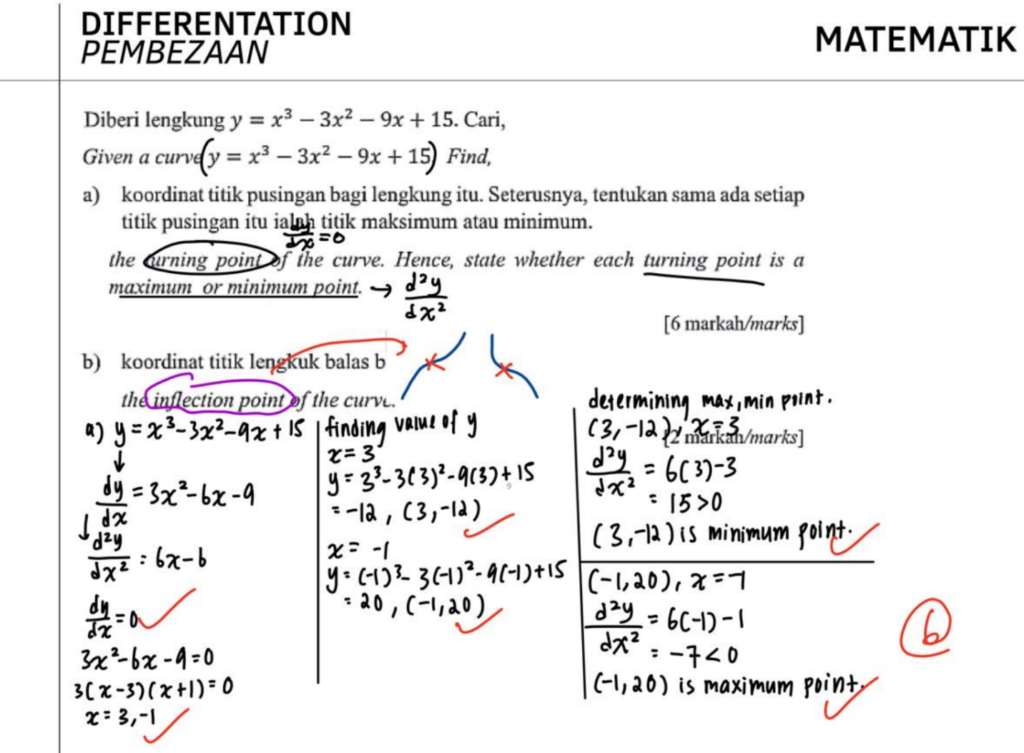 DIFFERENTATION
PEMBEZAAN
MATEMATIK
Diberi lengkung y = x³ − 3x² − 9x + 15. Cari,
Given a curve (y = x³ − 3x² − 9x + 15) Find,
a) koordinat titik pusingan bagi lengkung itu. Seterusnya, tentukan sama ada setiap
titik pusingan itu ialah titik maksimum atau minimum.
dy/dx = 0
the turning point of the curve. Hence, state whether each turning point is a
maximum or minimum point. → d²y/dx²
[6 markah/marks]
b) koordinat titik lengkuk balas b
the inflection point of the curve.
[2 markah/marks]
a) y = x³-3x²-9x+15
↓
dy/dx = 3x²-6x-9
↓
d²y/dx² = 6x-6
dy/dx = 0
3x²-6x-9=0
3(x-3)(x+1)=0
x=3,-1
finding value of y
x=3
y=3³-3(3)²-9(3)+15
=-12, (3,-12)
x=-1
y=(-1)³-3(-1)²-9(-1)+15
=20, (-1,20)
determining max,min point.
(3,-12), x=3
d²y/dx² = 6(3)-3
= 15>0
(3,-12) is minimum point.
(-1,20), x=-1
d²y/dx² = 6(-1)-1
= -7<0
(-1,20) is maximum point.
6